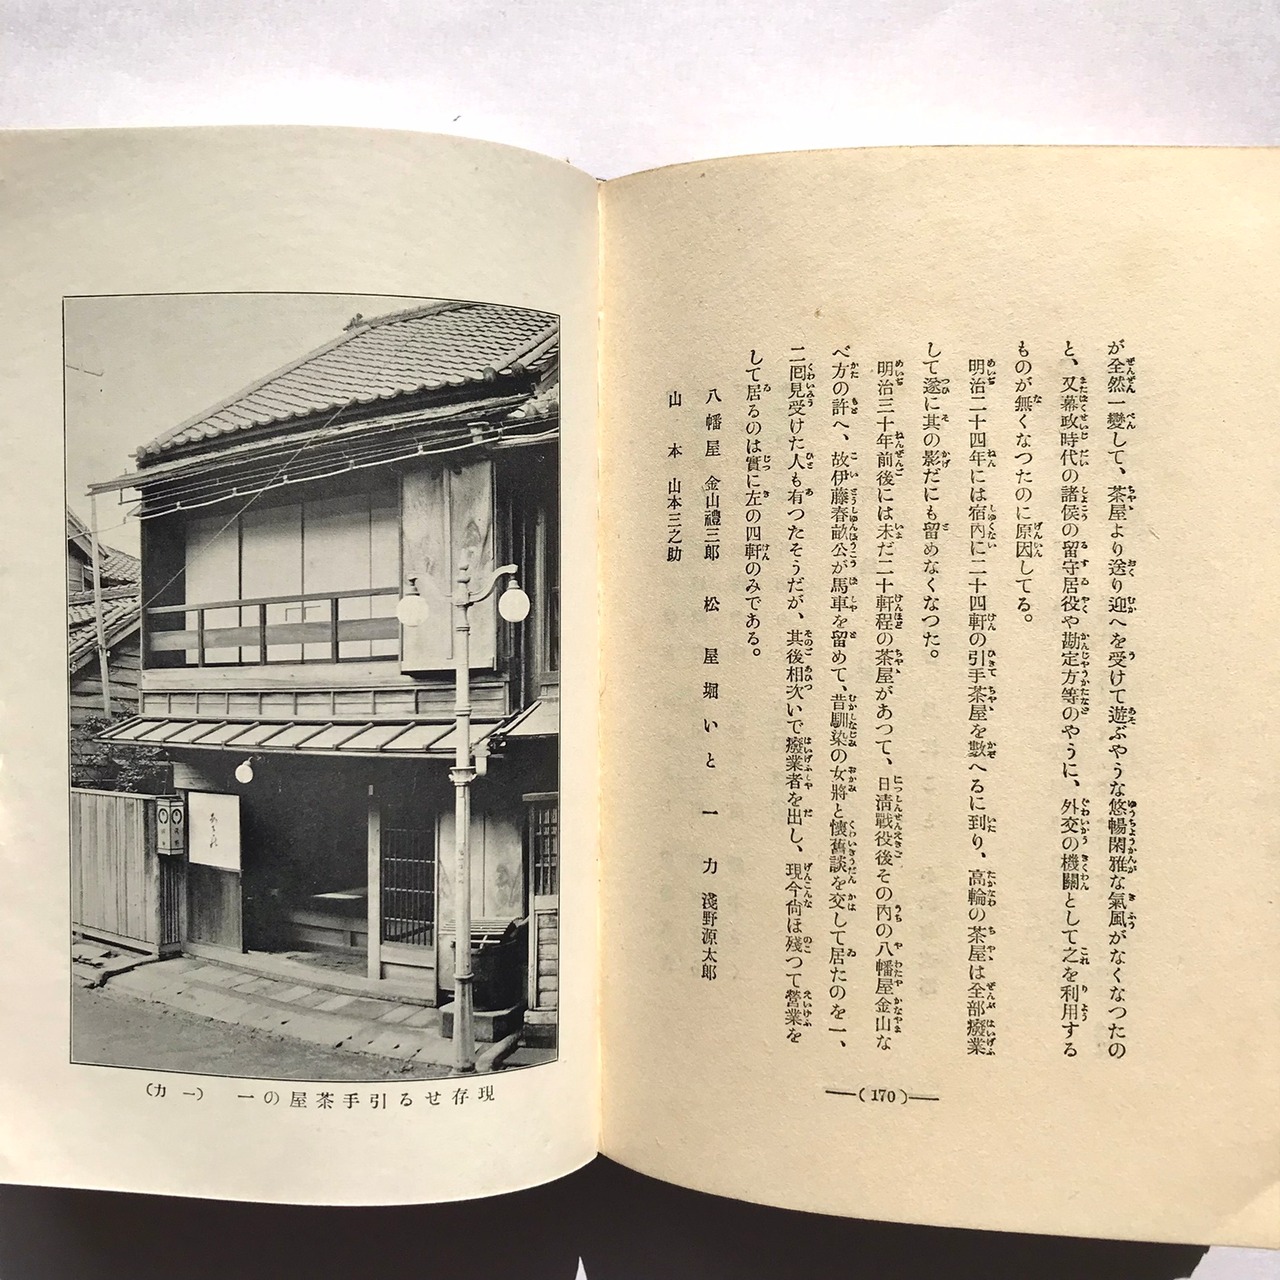 が全然一變して、茶屋より送り迎へを受けて遊ぶやうな悠暢閑雅な氣風がなくなつたの
と、又幕政時代の諸侯の留守居役や勘定方等のやうに、外交の機關として之を利用する
ものが無くなつたのに原因してる。
明治二十四年には宿內に二十四軒の引手茶屋を數へるに到り、高輪の茶屋は全部癈業
して遂に其の影だにも留めなくなつた。
明治三十年前後には未だ二十軒程の茶屋があつて、日淸戰役後その內の八幡屋金山な
べ方の許へ、故伊藤春畝公が馬車を留めて、昔馴染の女將と懷舊談を交して居たのを一、
二囘見受けた人も有つたそうだが、其後相次いで癈業者を出し、現今尙ほ殘つて營業を
して居るのは實に左の四軒のみである。
八幡屋 金山禮三郎 松屋 堀いと 一力 淺野源太郎
山本 山本三之助
―(170)―
現存せる引手茶屋の一 (一力)